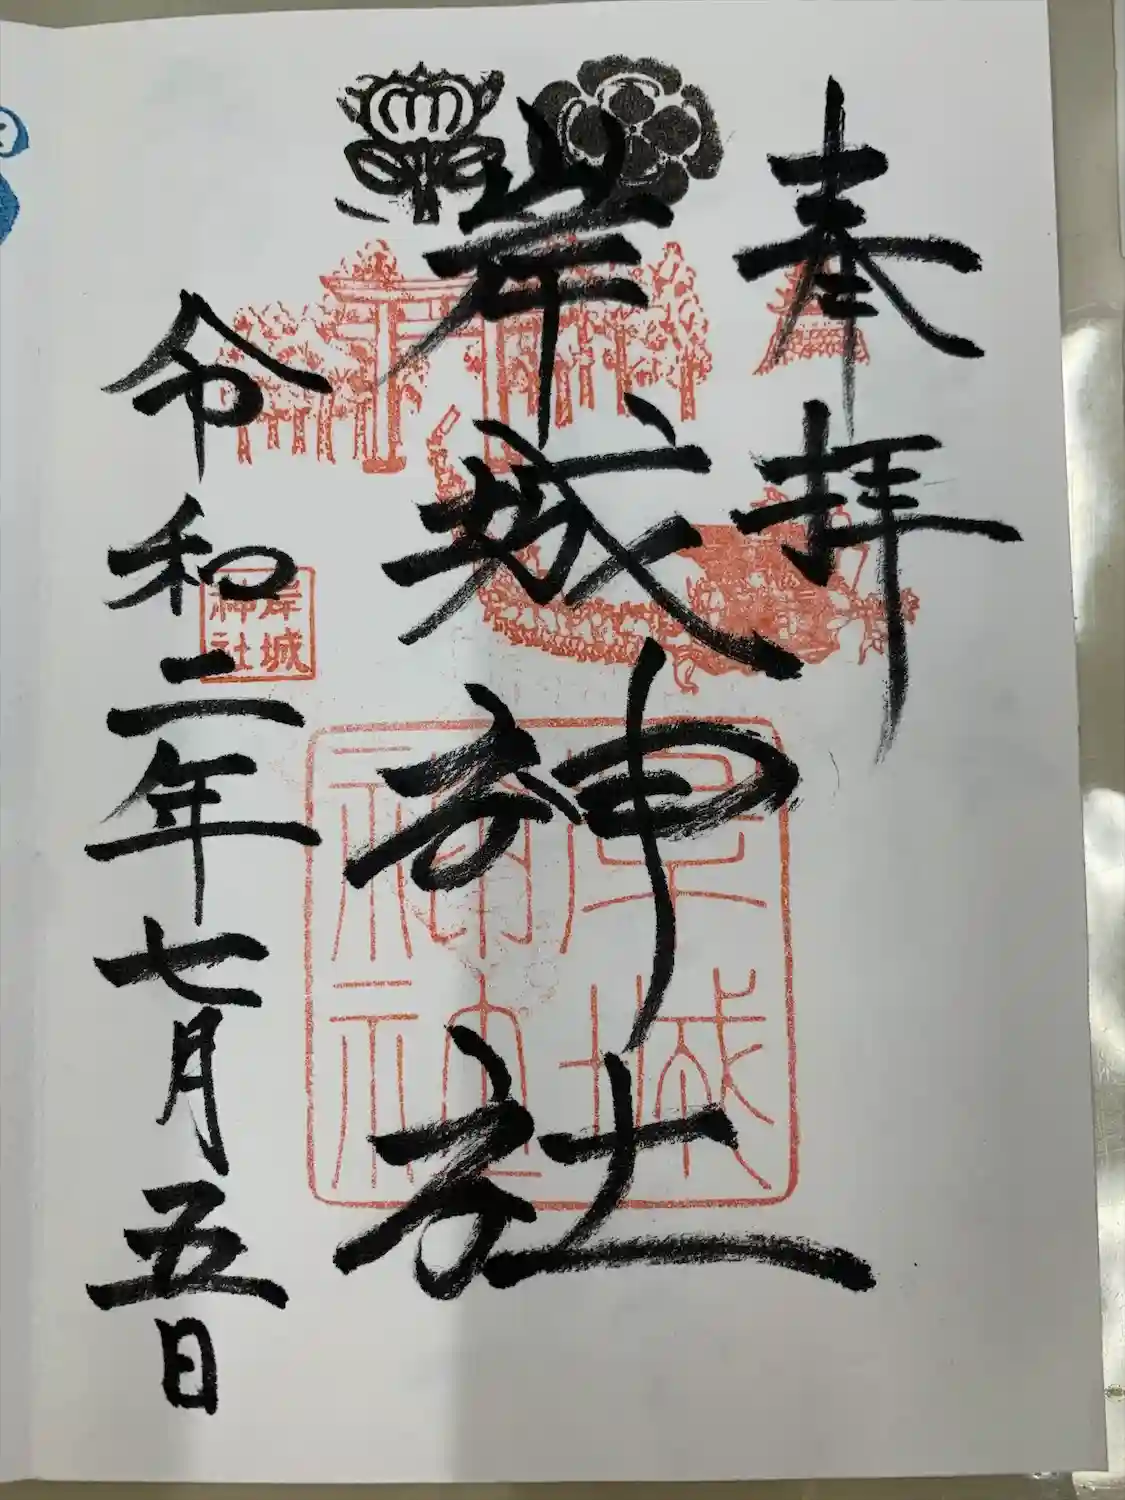 奉拝
岸城神社
岸城
神社
岸城
神社
令和二年七月五日